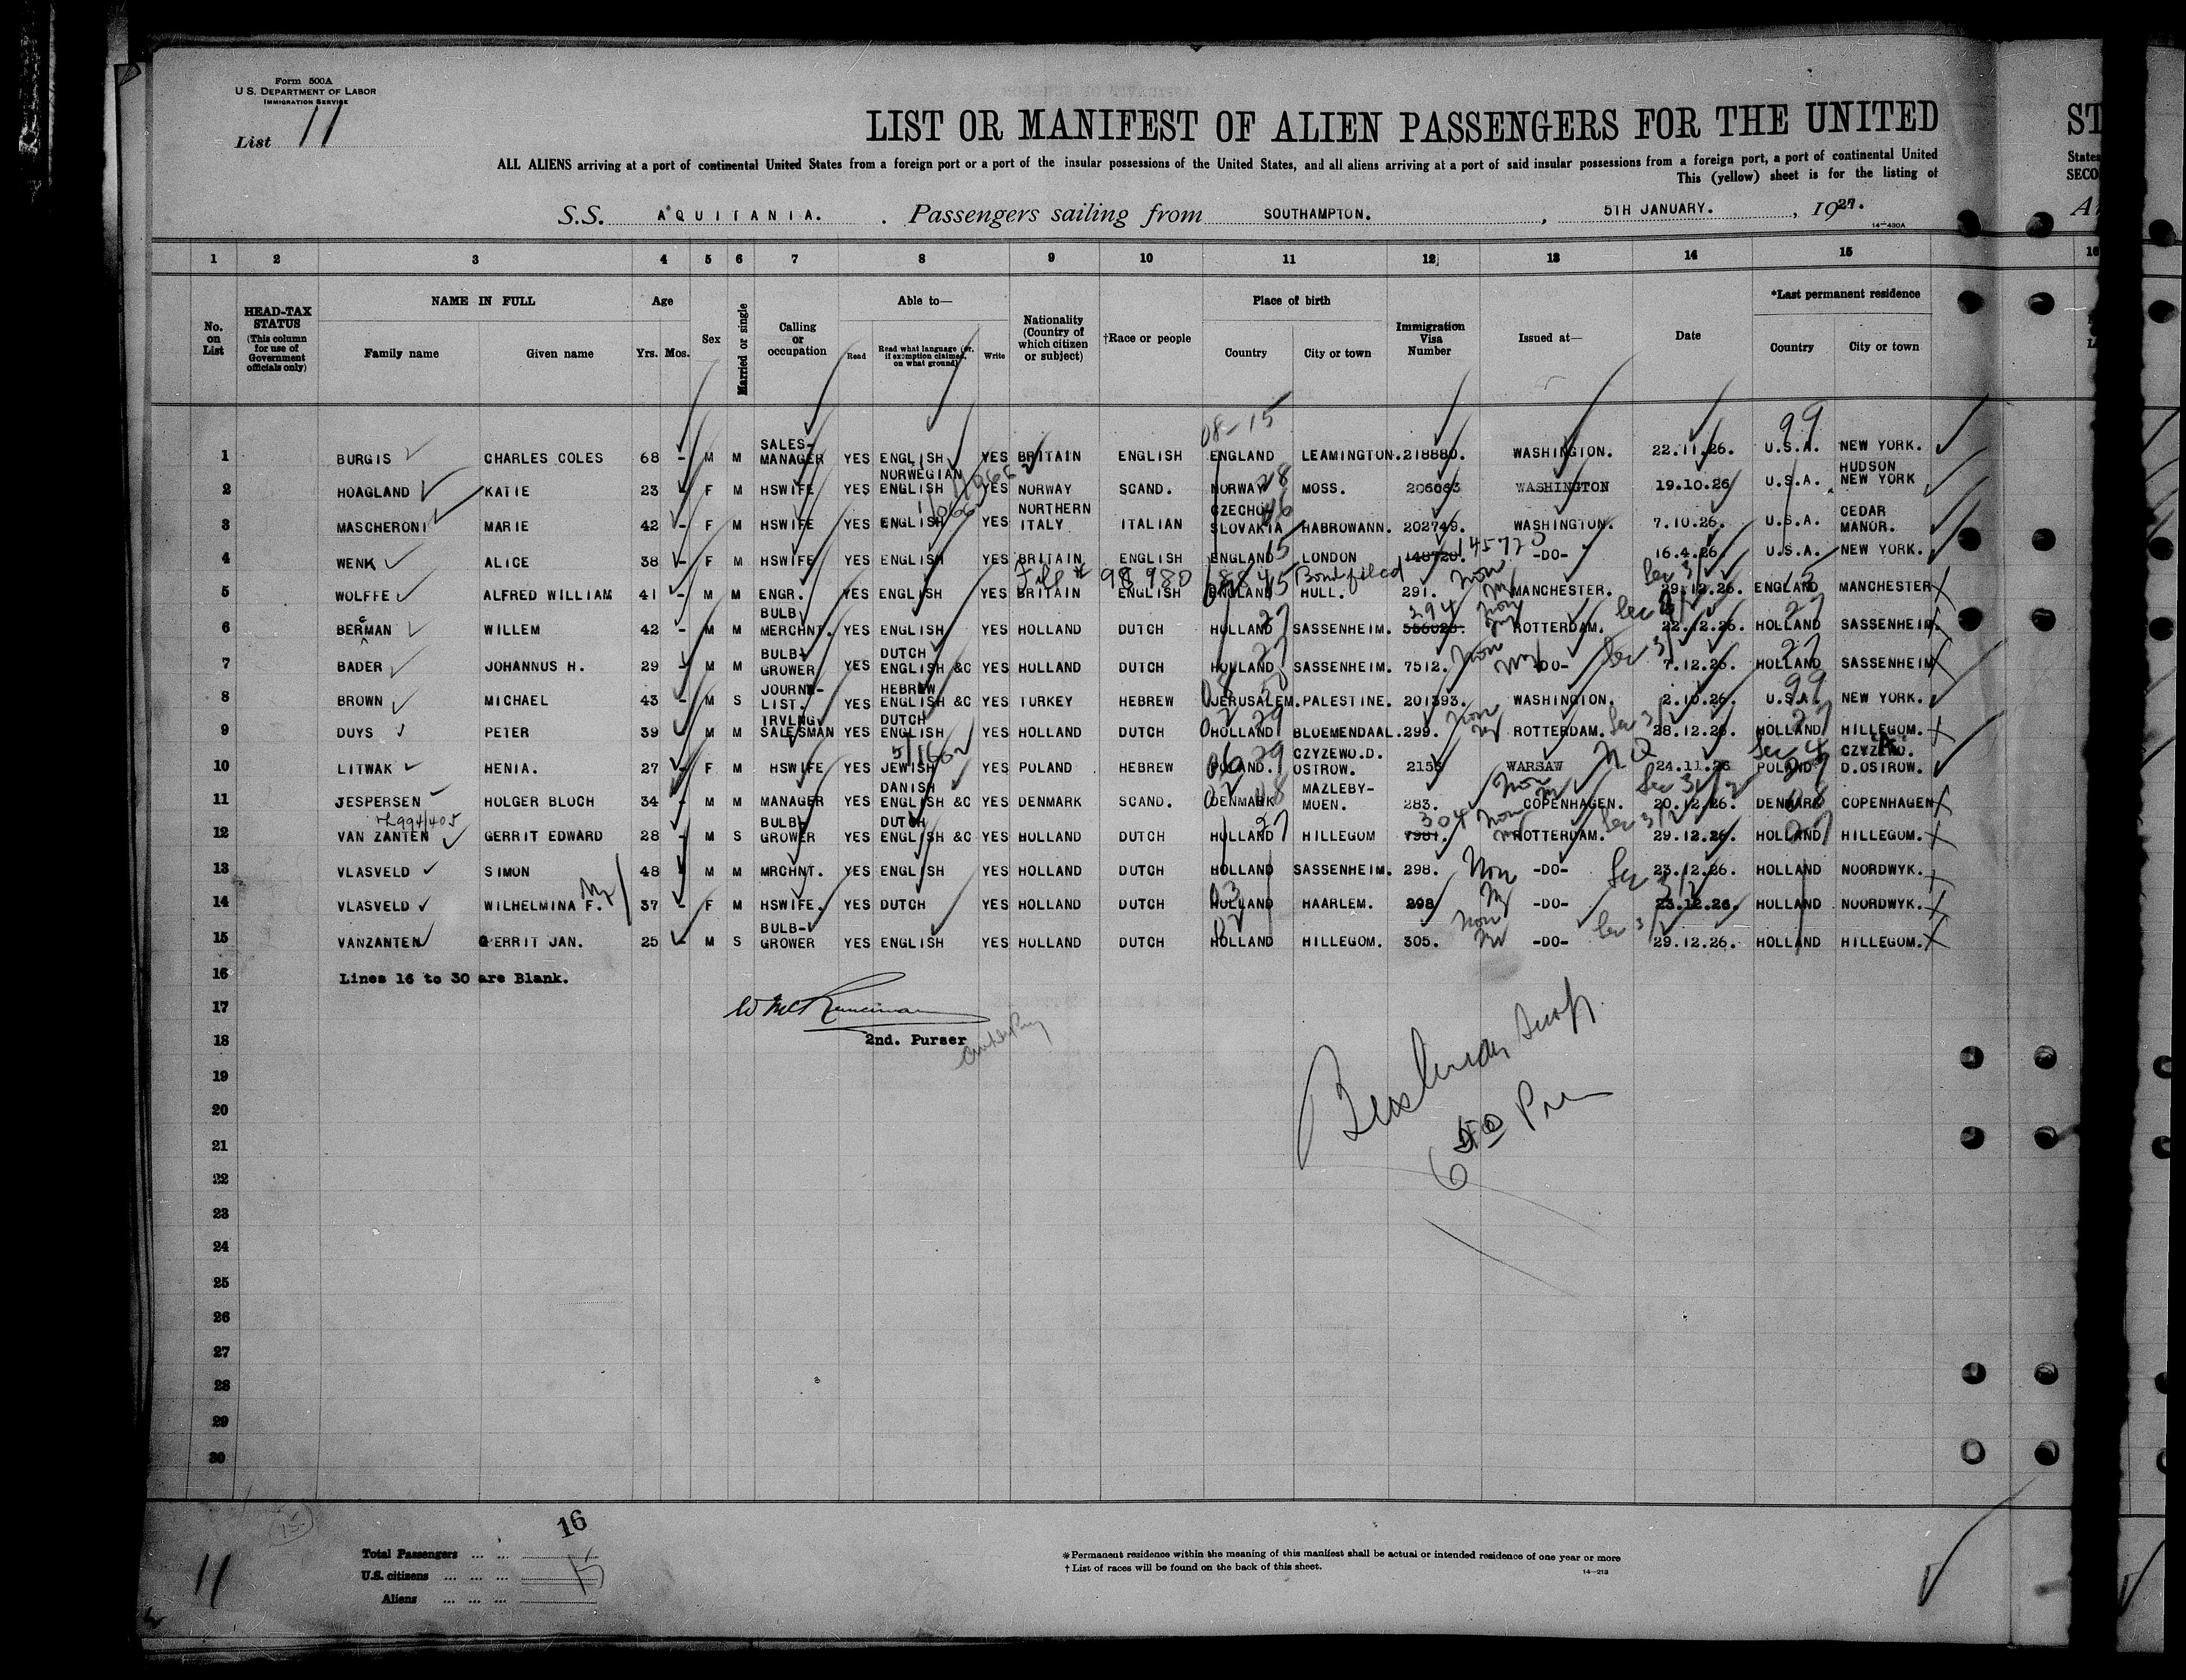 Form 500A
U. S. DEPARTMENT OF LABOR
IMMIGRATION SERVICE
List 11
LIST OR MANIFEST OF ALIEN PASSENGERS FOR THE UNITED
ST
ALL ALIENS arriving at a port of continental United States from a foreign port or a port of the insular possessions of the United States, and all aliens arriving at a port of said insular possessions from a foreign port, a port of continental United
States
This (yellow) sheet is for the listing of
SECO
S.S. AQUITANIA. Passengers sailing from SOUTHAMPTON. , 5TH JANUARY. , 1927.
14—430A
1 2 3 4 5 6 7 8 9 10 11 12 13 14 15 16
No. on List
HEAD-TAX STATUS (This column for use of Government officials only)
NAME IN FULL
Family name Given name
Age
Yrs. Mos.
Sex
Married or single
Calling or occupation
Able to—
Read
Read what language (or, if exemption claimed, on what ground)
Write
Nationality (Country of which citizen or subject)
†Race or people
Place of birth
Country City or town
Immigration Visa Number
Issued at—
Date
*Last permanent residence
Country City or town
08-15 99
1 BURGIS CHARLES COLES 68 - M M SALES-MANAGER YES ENGLISH YES BRITAIN ENGLISH ENGLAND LEAMINGTON. 218880. WASHINGTON. 22.11.26. U.S.A. NEW YORK.
2 HOAGLAND KATIE 23 F M HSWIFE YES NORWEGIAN ENGLISH YES NORWAY SCAND. NORWAY MOSS. 206063 WASHINGTON 19.10.26 U.S.A. HUDSON NEW YORK
3 MASCHERONI MARIE 42 - F M HSWIFE YES ENGLISH YES NORTHERN ITALY ITALIAN CZECHO SLOVAKIA HABROWANN. 202749. WASHINGTON. 7.10.26. U.S.A. CEDAR MANOR.
4 WENK ALICE 38 - F M HSWIFE YES ENGLISH YES BRITAIN ENGLISH ENGLAND LONDON 148720. 145720 -DO- 16.4.26. U.S.A. NEW YORK.
Bond filed
5 WOLFFE ALFRED WILLIAM 41 - M M ENGR. YES ENGLISH YES BRITAIN ENGLISH ENGLAND HULL. 291. MANCHESTER. 29.12.26. ENGLAND MANCHESTER
6 BERMAN WILLEM 42 - M M BULB MERCHNT. YES ENGLISH YES HOLLAND DUTCH HOLLAND SASSENHEIM. 294 ROTTERDAM. 22.12.26. HOLLAND SASSENHEIM.
7 BADER JOHANNUS H. 29 M M BULB GROWER YES DUTCH ENGLISH &C YES HOLLAND DUTCH HOLLAND SASSENHEIM. 7512. -DO- 7.12.26. HOLLAND SASSENHEIM
8 BROWN MICHAEL 43 - M S JOURNA-LIST. YES HEBREW ENGLISH &C YES TURKEY HEBREW JERUSALEM. PALESTINE. 201393. WASHINGTON. 2.10.26. U.S.A. NEW YORK.
9 DUYS PETER 39 M M TRVLNG SALESMAN YES DUTCH ENGLISH YES HOLLAND DUTCH HOLLAND BLOEMENDAAL. 299. ROTTERDAM. 28.12.26. HOLLAND HILLEGOM.
10 LITWAK HENIA. 27 - F M HSWIFE YES JEWISH YES POLAND HEBREW POLAND. CZYZEWO.D. OSTROW. 2155 WARSAW 24.11.26 POLAND CZYZEWO. D.OSTROW.
11 JESPERSEN HOLGER BLOCH 34 - M M MANAGER YES DANISH ENGLISH &C YES DENMARK SCAND. DENMARK MAZLEBY-MOEN. 283. COPENHAGEN. 20.12.26. DENMARK COPENHAGEN
12 VAN ZANTEN GERRIT EDWARD 28 - M S BULB GROWER YES DUTCH ENGLISH &C YES HOLLAND DUTCH HOLLAND HILLEGOM 304 ROTTERDAM. 29.12.26. HOLLAND HILLEGOM.
13 VLASVELD SIMON 48 M M MRCHNT. YES ENGLISH YES HOLLAND DUTCH HOLLAND SASSENHEIM. 298. -DO- 23.12.26. HOLLAND NOORDWYK.
14 VLASVELD WILHELMINA F. 37 - F M HSWIFE. YES DUTCH YES HOLLAND DUTCH HOLLAND HAARLEM. 298 -DO- 23.12.26. HOLLAND NOORDWYK.
15 VANZANTEN GERRIT JAN. 25 - M S BULB-GROWER YES ENGLISH YES HOLLAND DUTCH HOLLAND HILLEGOM. 305. -DO- 29.12.26. HOLLAND HILLEGOM.
16 Lines 16 to 30 are Blank.
17
18 2nd. Purser
19
20
21
22
23
24
25
26
27
28
29
30
16
15
11
Total Passengers ... ...
U.S. citizens ... ... ... 15
Aliens ... ... ...
*Permanent residence within the meaning of this manifest shall be actual or intended residence of one year or more
† List of races will be found on the back of this sheet.
14—213